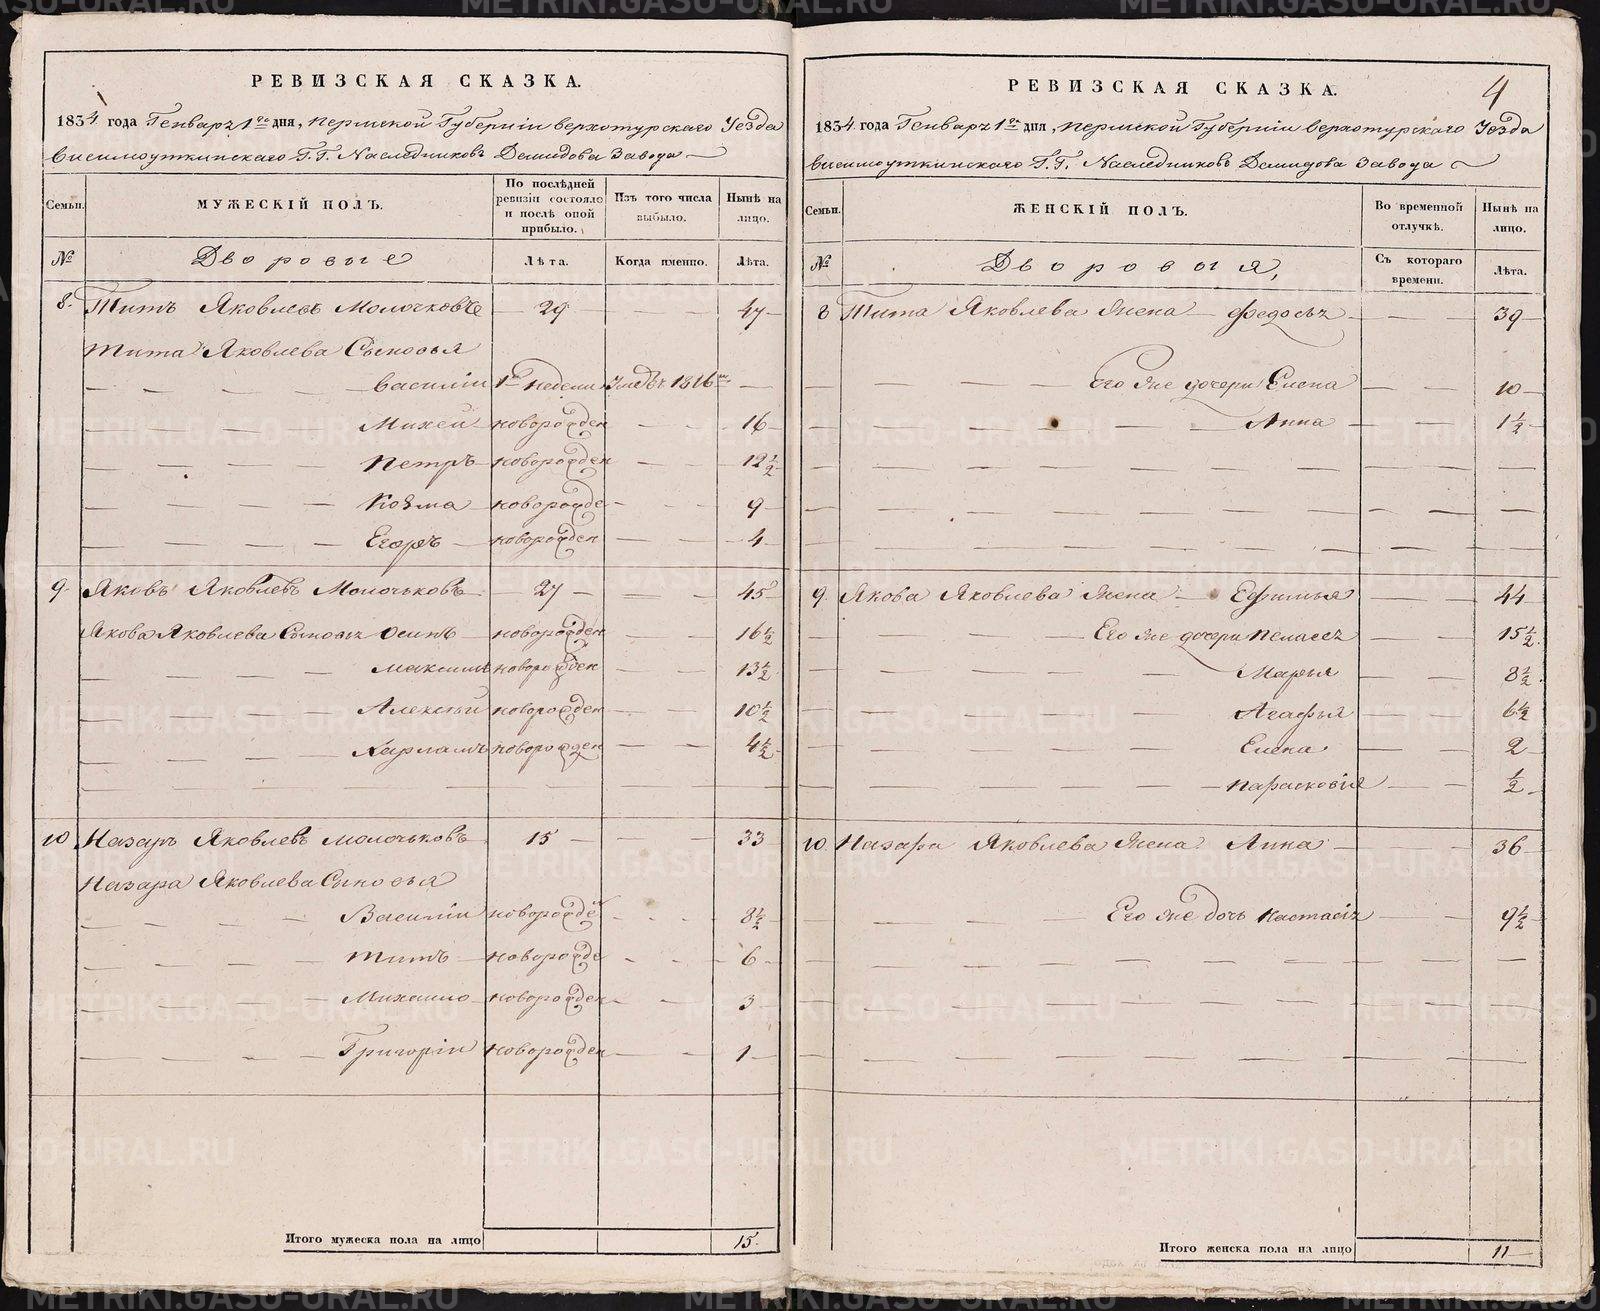 РЕВИЗСКАЯ СКАЗКА.
1834 года Генваря 1го дня, Пермской Губернiи Верхотурскаго Уезда
Висимоуткинскаго Г.Г. Наследниковъ Демидова Завода
Семьи. МУЖЕСКIЙ ПОЛЪ. По послѣдней ревизiи состояло и послѣ оной прибыло. Изъ того числа выбыло. Нынѣ на лицо.
№ Дворовые Лѣта. Когда именно. Лѣта.
8. Титъ Яковлевъ Молочковъ 29 47
Тита Яковлева Сыновья
Василiи 1й недели 1816
Михей новорожден 16
Петръ новорожден 12 1/2
Козма новорожде 9
Егоръ новорожден 4
9 Яковъ Яковлевъ Молочьковъ 27 45
Якова Яковлева Сыновья Осипъ новорожден 16 1/2
Максимъ новорожден 13 1/2
Алексѣй новорожден 10 1/2
Харламъ новорожден 4 1/2
10 Назаръ Яковлевъ Молочьковъ 15 33
Назара Яковлева Сыновья
Василiи новорожде 8 1/2
Титъ новорожде 6
Михаило новорожден 3
Григорiи новорожден 1
Итого мужеска пола на лицо 15
4
РЕВИЗСКАЯ СКАЗКА.
1834 года Генваря 1го дня, Пермской Губернiи Верхотурскаго Уезда
Висимоуткинскаго Г.Г. Наследниковъ Демидова Завода
Семьи. ЖЕНСКIЙ ПОЛЪ. Во временной отлучкѣ. Нынѣ на лицо.
№ Дворовыя, Съ котораго времени. Лѣта.
8 Тита Яковлева Жена Федосья 39
Его же дочери Елена 10
Анна 1 1/2
9 Якова Яковлева Жена Ефимья 44
Его же дочери Пелагея 15 1/2
Марья 8 1/2
Агафья 6 1/2
Елена 2
Парасковiя 1/2
10 Назара Яковлева Жена Анна 36
Его же дочь Настасiя 9 1/2
Итого женска пола на лицо 11
METRIKI.GASO-URAL.RU